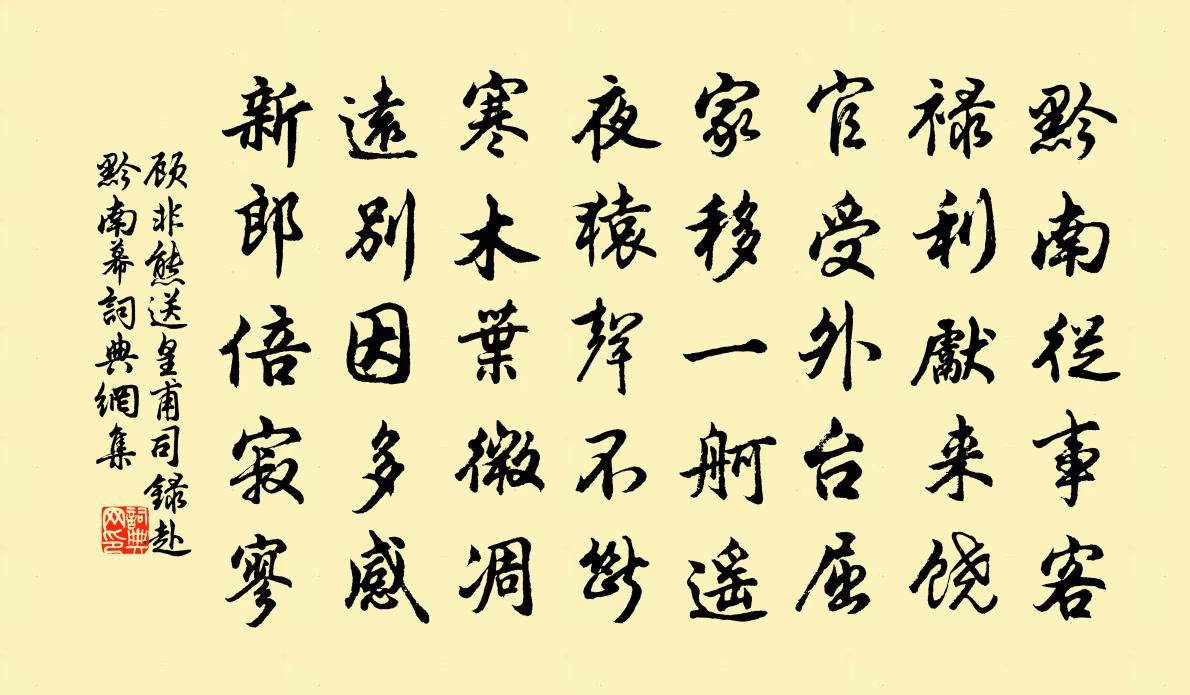 黔南從事客
禄利獻来饒
官受外台屈
家移一舸遥
夜猿聲不斷
寒木葉微凋
遠別因多感
新郎倍寂寥
顾非熊送皇甫司録赴
黔南幕詞典網集
詞典
网印